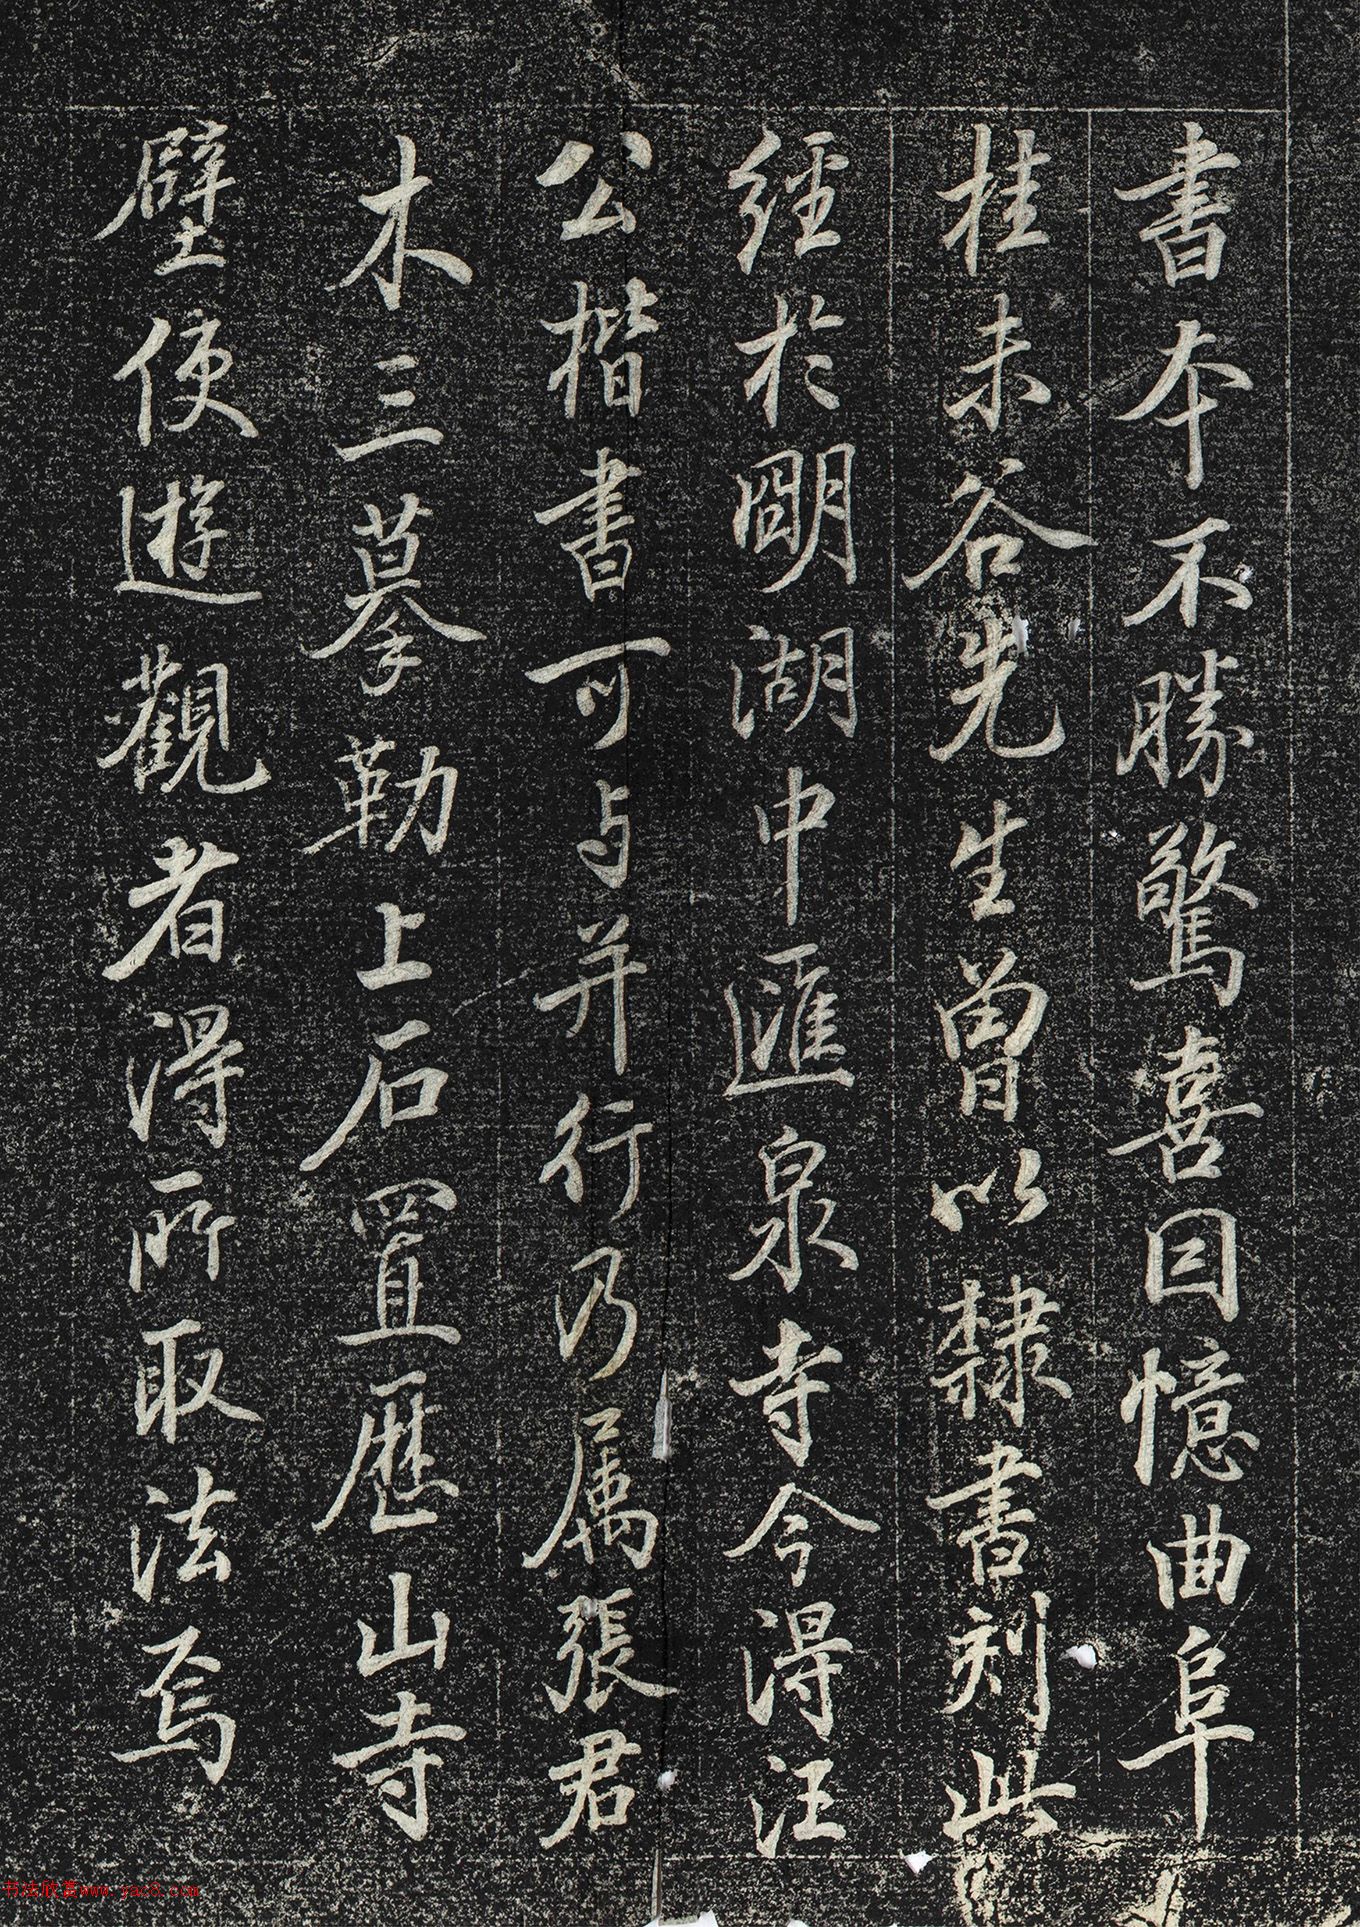 書本不勝驚喜因憶曲阜
桂未谷先生曾以隸書刻此
經於朙湖中匯泉寺今得汪
公楷書可与并行乃属張君
木三摹勒上石置歷山寺
壁使遊觀者得所取法焉
书法欣赏www.yac8.com